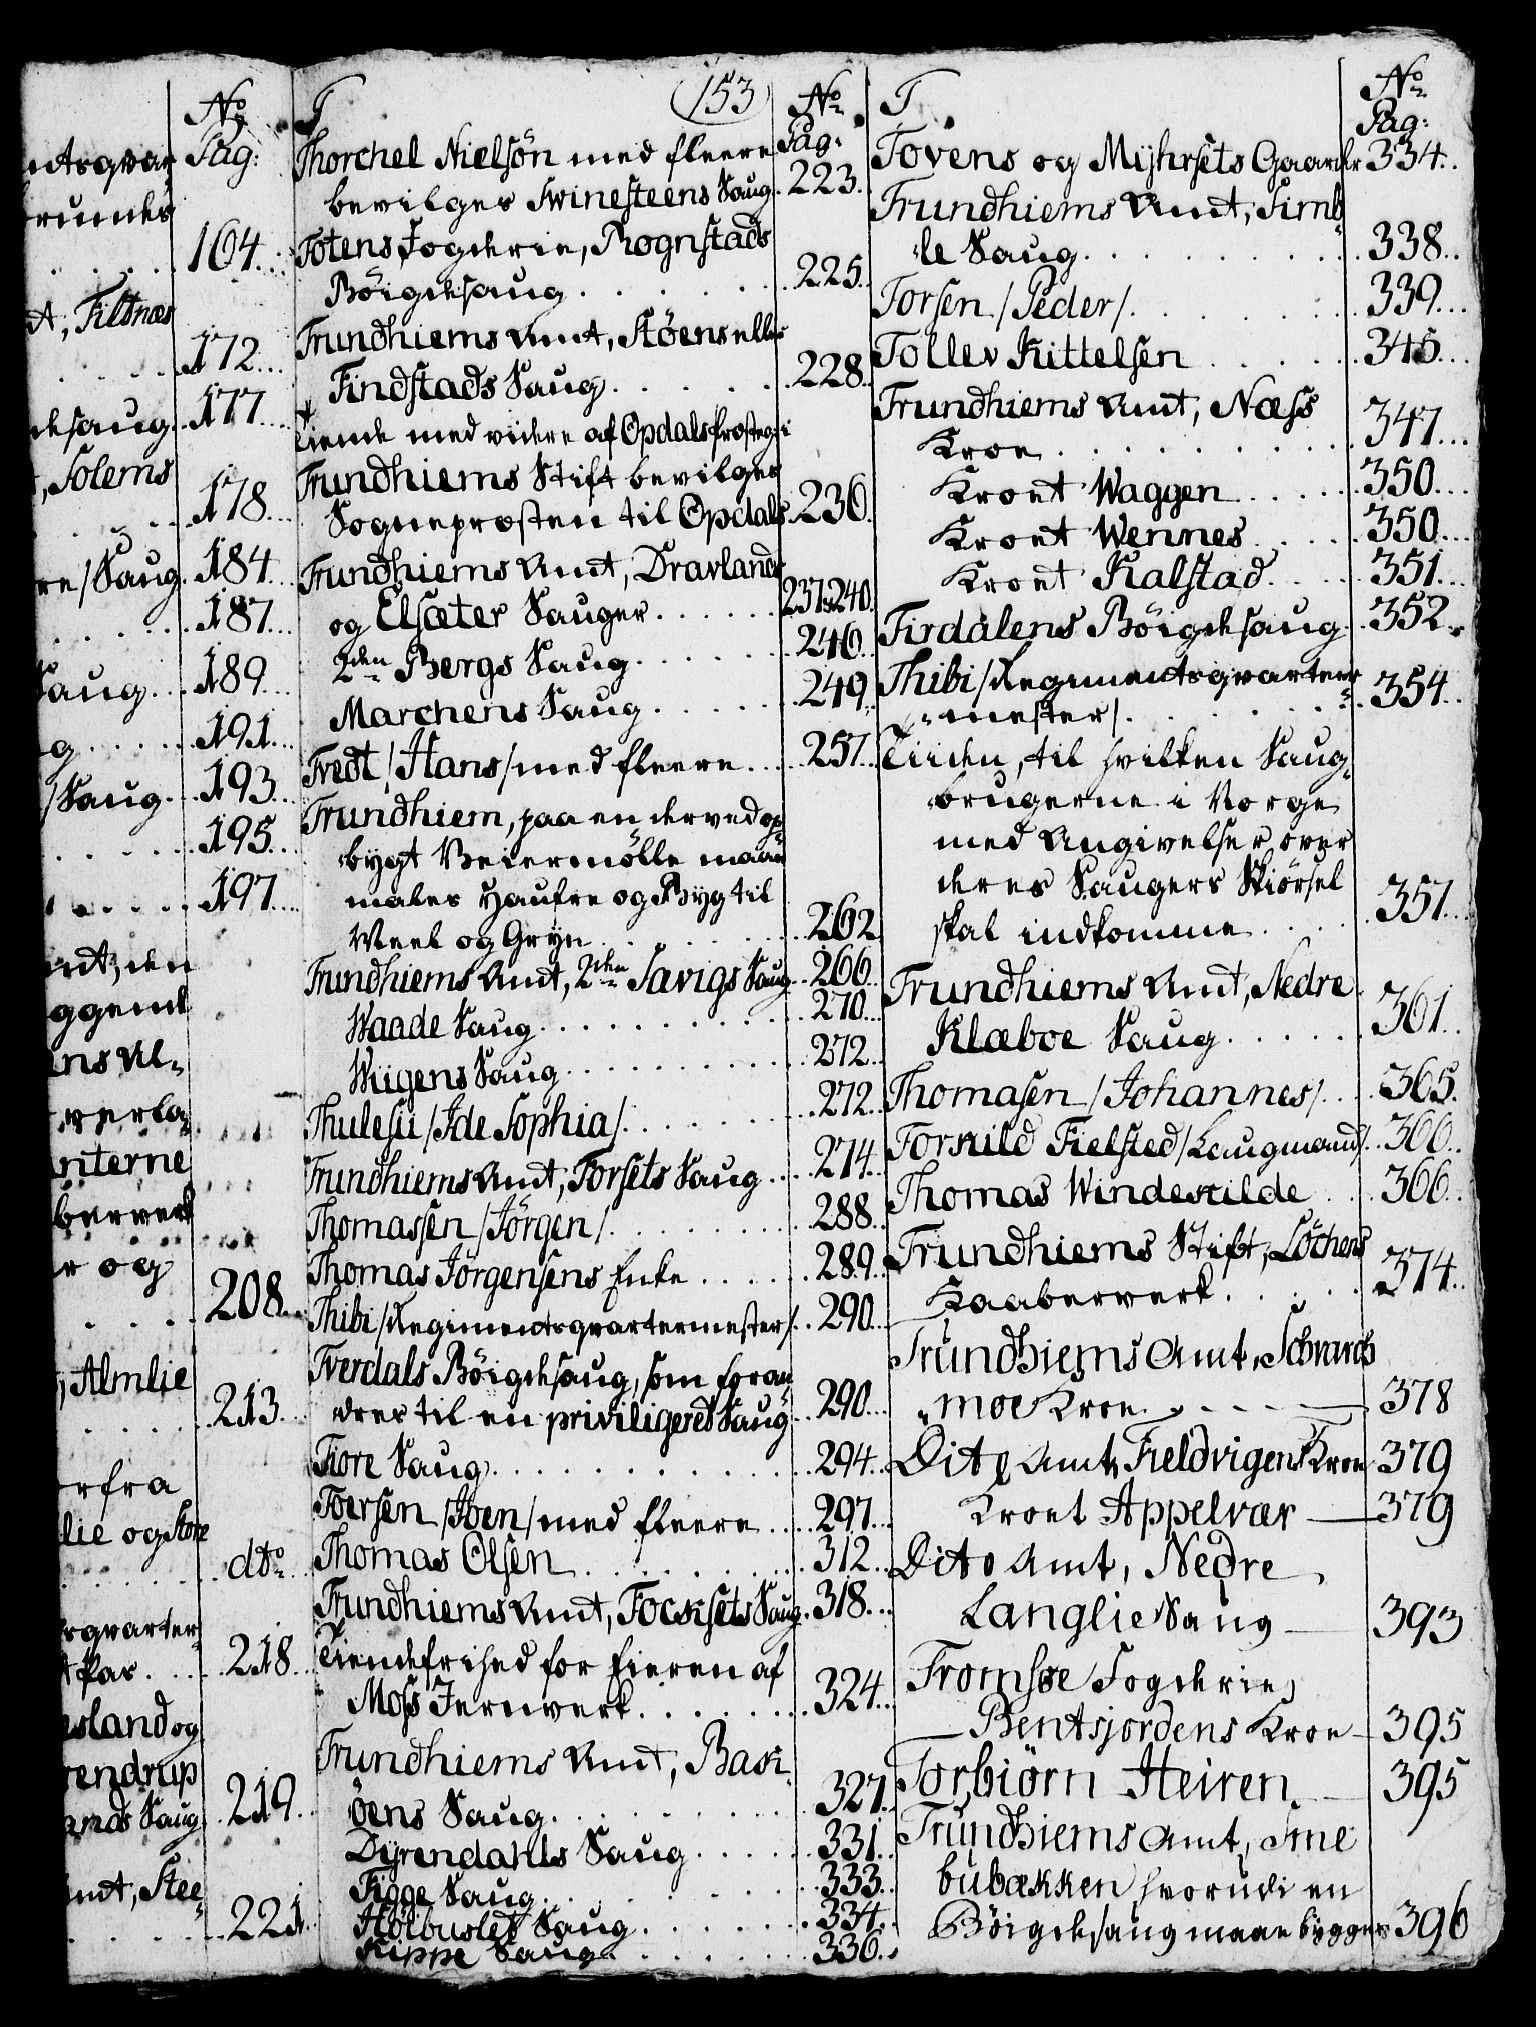 No
Pag:
ntsqvar
runder
164
t, Fildnæs
172
177
desaug
, Solems
178
re/ Saug 184
187
Saug 189
g 191
/ Saug 193
195
197
mt, den
ggende
ens Al-
verla
riterne
berverk
r og
208
, Almlie
213
erfra
lie og Store
dto
sqvarter
218
esland og
rendrup
ands Saug 219
Amt, Stee-
221
153
T No
Pag:
Thorchel Nielsön med fleere
bevilges Svinesteens Saug 223
Totens Fogderie, Rognstads
Böigdesaug 225
Trundhiems Amt, Stöens eller
Findstads Saug 228
Tiende med videre af Opdals Prestegi
Trundhiems Stift bevilges
Sognepresten til Opdals 236
Trundhiems Amt, Dravlands
og Elsæter Sauger 237 240
2den Bergs Saug 240
Marchens Saug 249
Tvedt /Hans/ med fleere 257
Trundhiem, paa en derved op-
bygt Veiermölle maae
males Haufre og Byg til
Meel og Gryn 262
Trundhiems Amt, 2den Savigs Saug 266
Waade Saug 270
Wiigens Saug 272
Thulesii /Ide Sophia/ 272
Trundhiems Amt, Forsets Saug 274
Thomassen /Jörgen/ 288
Thomas Jörgensens Enke 289
Thibi /Regimentsqvartermester/ 290
Tverdals Böigdesaug, som foran-
dres til en priviligered Saug 290
Tiore Saug 294
Toersen /Joen/ med fleere 297
Thomas Olsen 312
Trundhiems Amt, Focksets Saug 318
Tiendefrihed for Eieren af
Moss Jernverk 324
Trundhiems Amt, Bask-
öens Saug 327
Dyrendahls Saug 331
Figge Saug 333
Hölbuslet Saug 334
Kippe Saug 336
T No
Pag:
Tovens og Myhrsets Gaarde 334
Trundhiems Amt, Simb-
le Saug 338
Torsen /Peder/ 339
Tollev Kittelsen 345
Trundhiems Amt, Næss
Kroe 347
Kroet Waggen 350
Kroet Wennes 350
Kroet Kalstad 351
Tirdalens Böigdesaug 352
Thibi /Regimentsqvarteer-
mester/ 354
Tiiden, til hvilken Saug-
brugerne i Norge
med Angivelser over
deres Saugers Skiörsel
skal indkomme 357
Trundhiems Amt, Nedre
Klæboe Saug 361
Thomasen /Johannes/ 365
Torkild Fielsted /Laugmand/ 366
Thomas Windekilde 366
Trundhiems Stift, Löchens
Kaaberverk 374
Trundhiems Amt, Schvarch
moe Kroe 378
Dito Amt, Fieldvigens Kroe 379
Kroet Appelvær 379
Dito Amt, Nedre
Langlie Saug 393
Tromsöe Fogderie,
Bentsjordens Kroe 395
Torbiörn Heiren 395
Trundhiems Amt, Sme
bubækken hvorudi en
Böigdesaug maae bygges 396